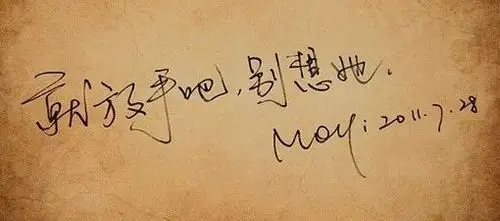 就放手吧,别想她.
May:2011.7.28